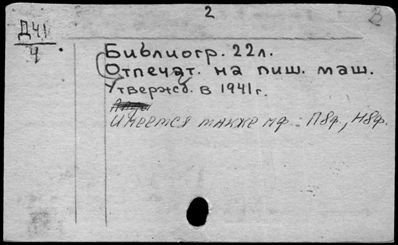 2
Д41
4
Библиогр. 22л.
(Отпечат. на пиш. маш.
Утвержд. в 1941г.
Имеется также мф: П8ф, Н8ф.